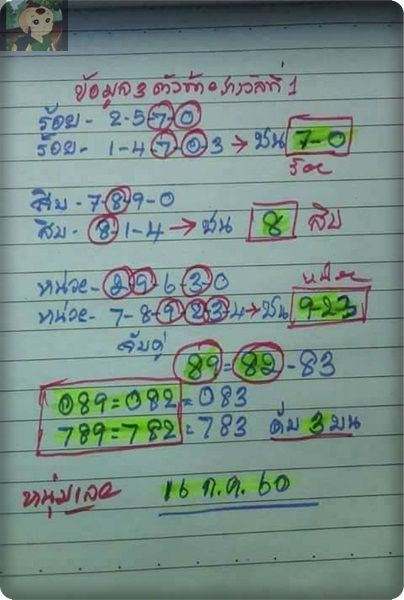 ข้อมูล 3 ตัวท้ายรางวัลที่ 1
ร้อย - 2-5-7-0
ร้อย - 1-4-7-0-3 → ชน 7-0
ร้อย
สิบ - 7-8-9-0
สิบ - 8-1-4 → ชน 8 สิบ
หน่วย
หน่วย - 2-9-6-3-0
หน่วย - 7-8-9-2-3-4 → ชน 9-23
จับคู่
89=82-83
089=082=083
789=782=783 ดับ 3 บน
หนุ่มเลย 16 ก.ค. 60